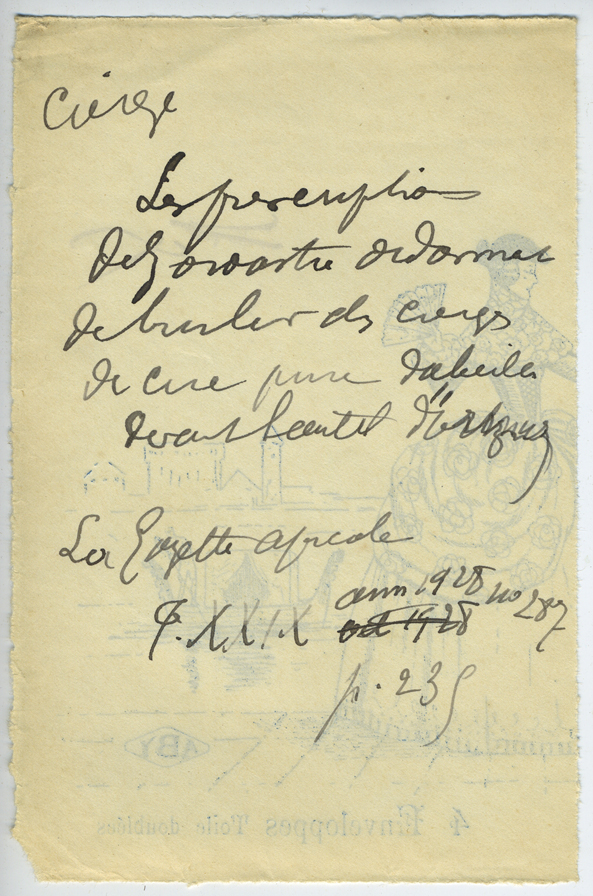 Cierge
Les prescriptions
de Zoroastre ordonnent
de bruler des cierges
de cire pure d'abeilles
devant l'autel
La Gazette apicole
T. XXIX ann 1928 no 287
oct 1928
p. 235
ABY
4 Enveloppes Toile doublées